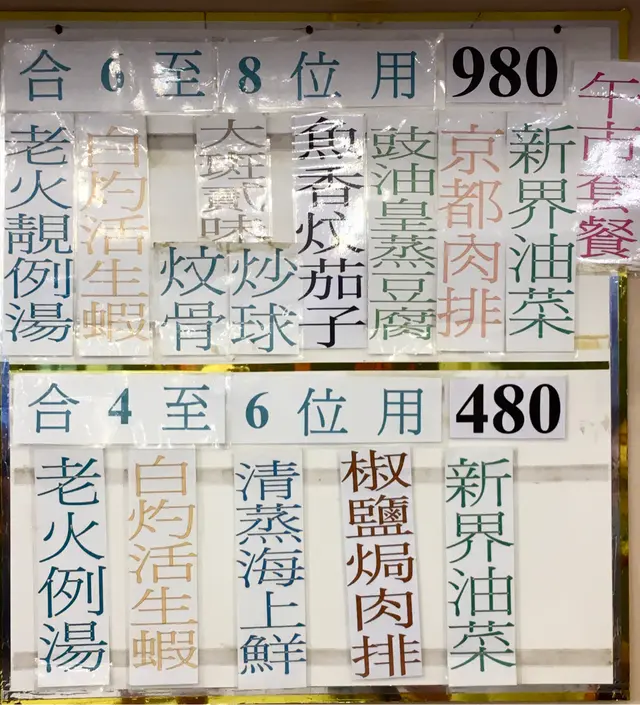 午市套餐
合6至8位用 980
老火靚例湯
白灼活生蝦
大斑貳味
炆骨
炒球
魚香炆茄子
豉油皇蒸豆腐
京都肉排
新界油菜
合4至6位用 480
老火例湯
白灼活生蝦
清蒸海上鮮
椒鹽焗肉排
新界油菜